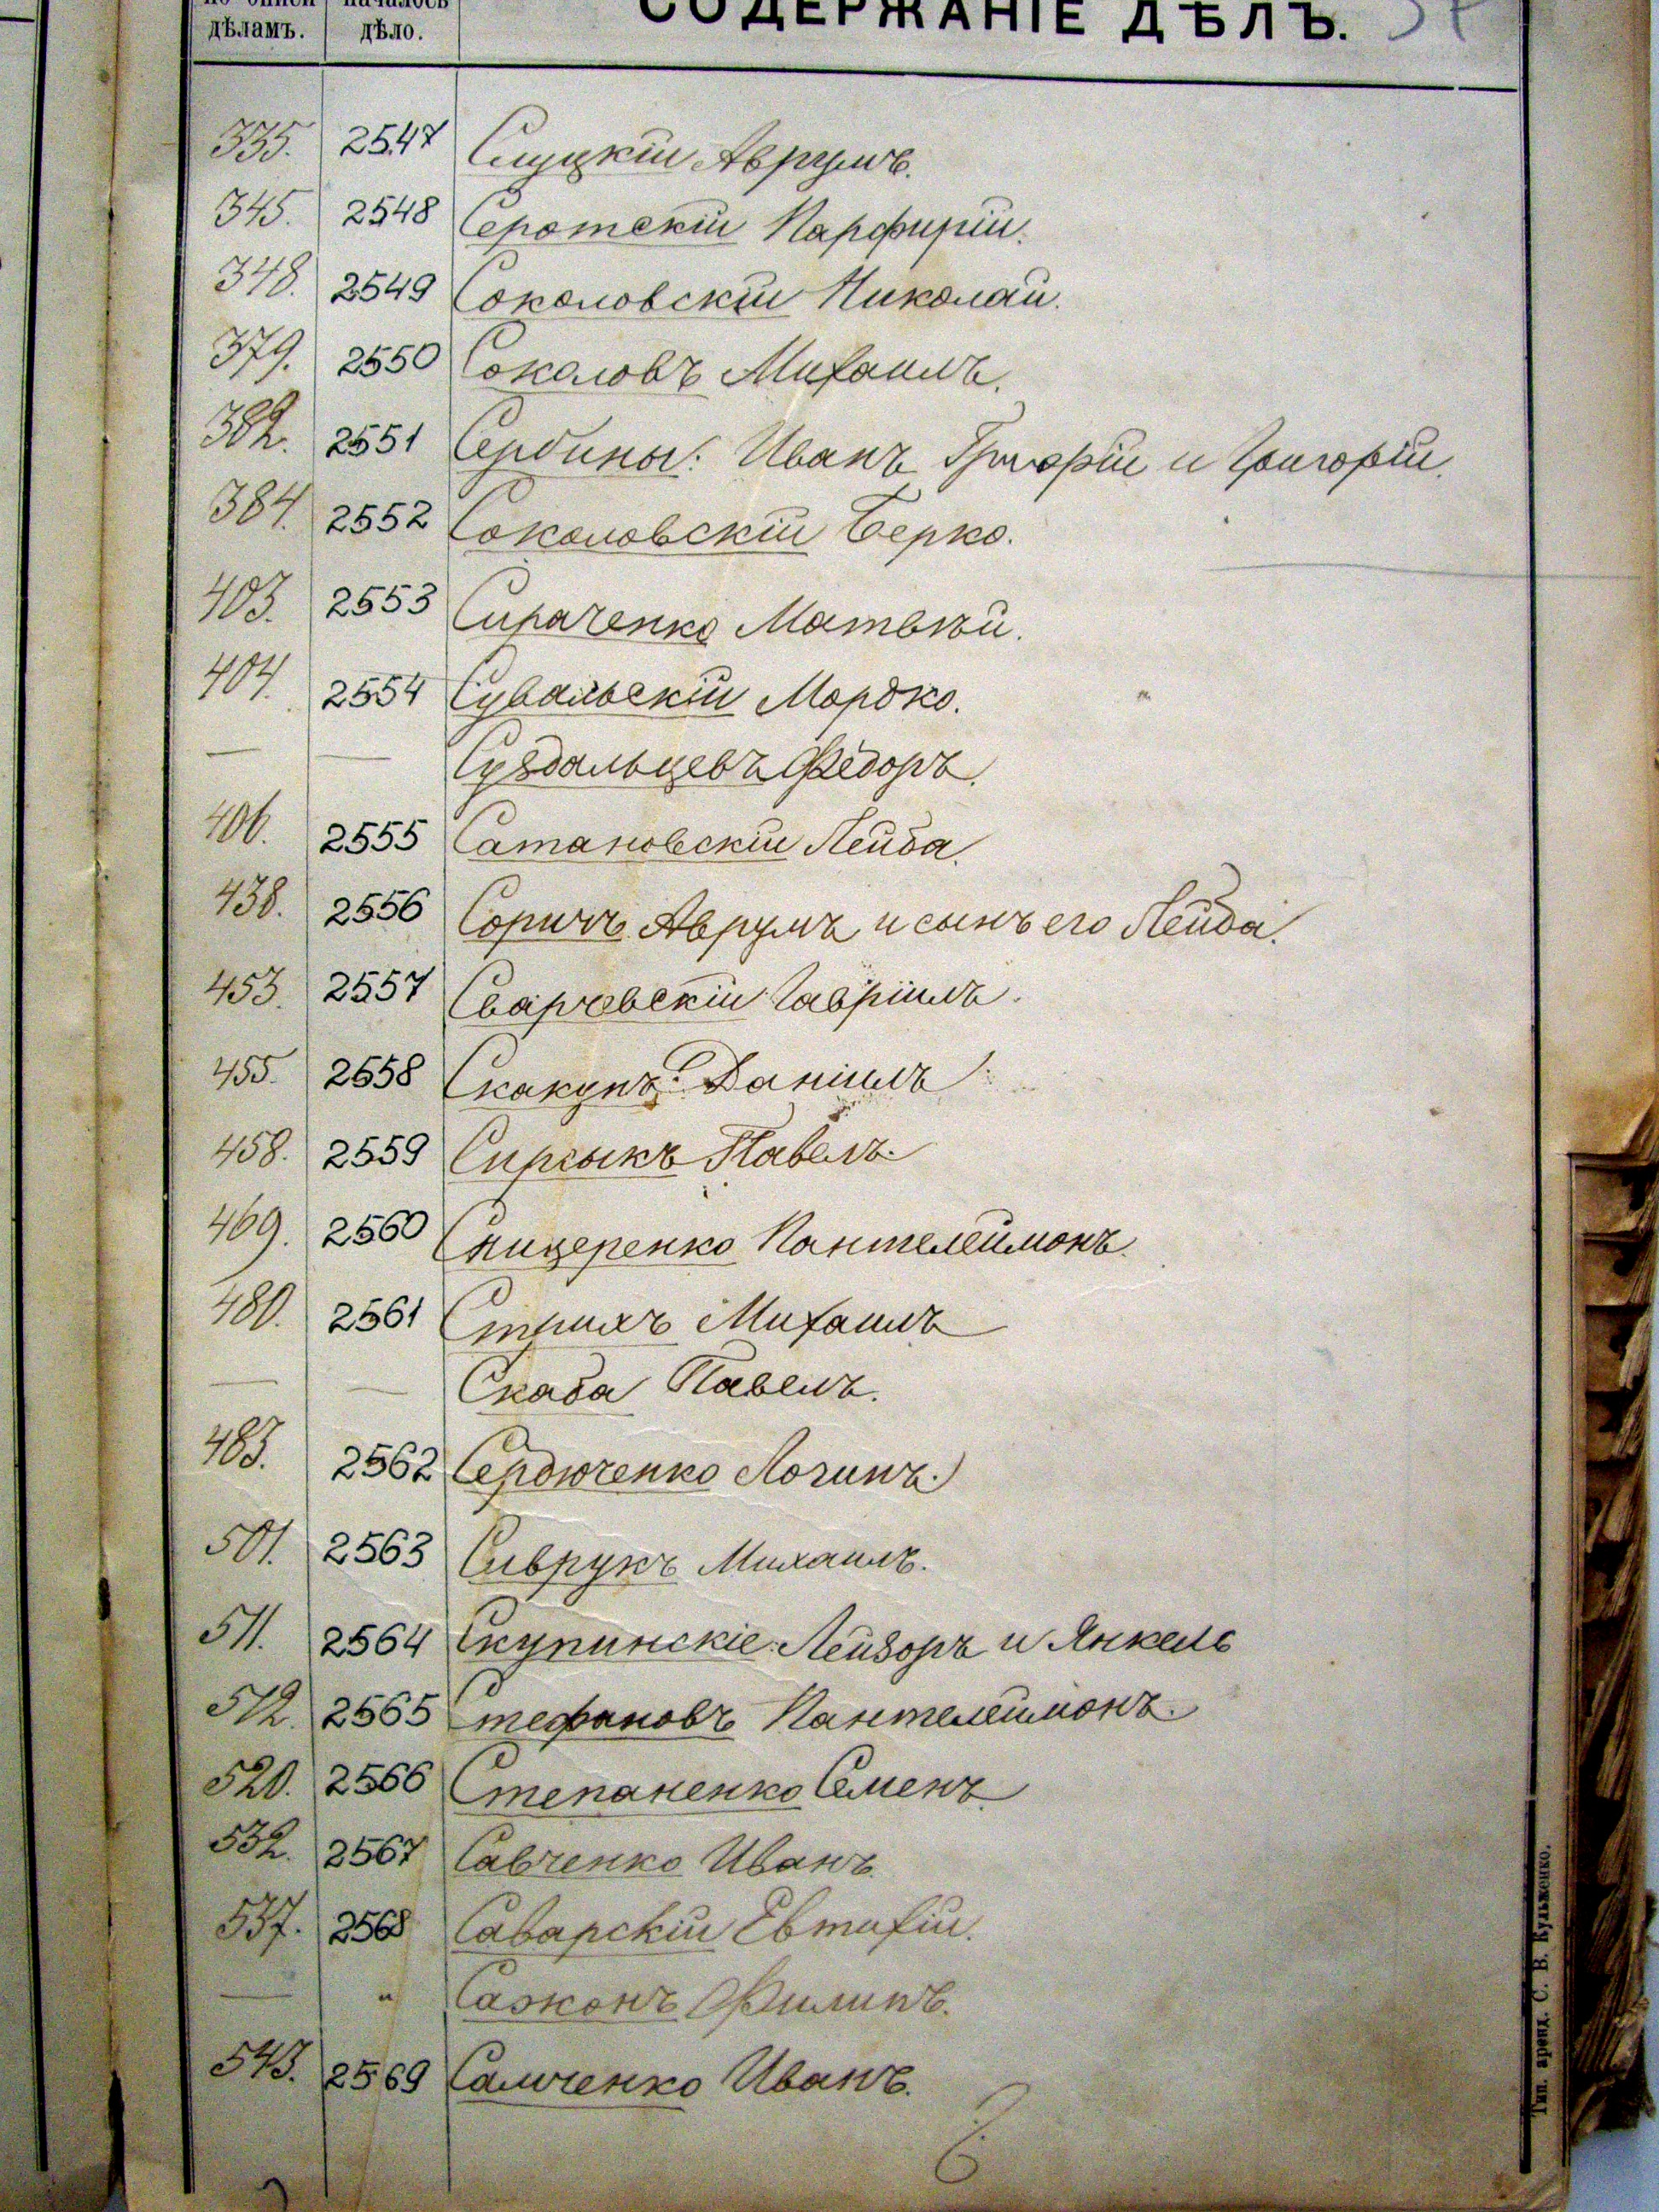 дѣламъ. дѣло. СОДЕРЖАНІЕ ДѢЛЪ.
335. 2547 Слуцкій Аврумъ.
345. 2548 Серотскій Парфирій.
348. 2549 Соколовскій Николай.
379. 2550 Соколовъ Михаилъ.
382. 2551 Сербины: Иванъ Григорій и Григорій.
384. 2552 Соколовскій Берко.
403. 2553 Сираченко Матвѣй.
404. 2554 Сувальскій Мордко.
— — Суздальцевъ Федоръ.
406. 2555 Сатановскій Лейба.
438. 2556 Соричъ Аврумъ и сынъ его Лейба.
453. 2557 Сварчевскій Гавріилъ.
455. 2558 Скакунъ: Даніилъ
458. 2559 Сиркыкъ Павелъ.
469. 2560 Сницеренко Пантелеймонъ.
480. 2561 Стрихъ Михаилъ
— — Скаба Павелъ.
483. 2562 Сердюченко Логинъ.
501. 2563 Сиврукъ Михаилъ.
511. 2564 Скупинскіе: Лейзоръ и Янкель
512. 2565 Стефановъ Пантелеймонъ.
520. 2566 Степаненко Семенъ.
532. 2567 Савченко Иванъ.
537. 2568 Саварскій Евтихій.
— " Сажонъ Филипъ.
543. 2569 Самченко Иванъ.
Тип. аренд. С. В. Кульженко.